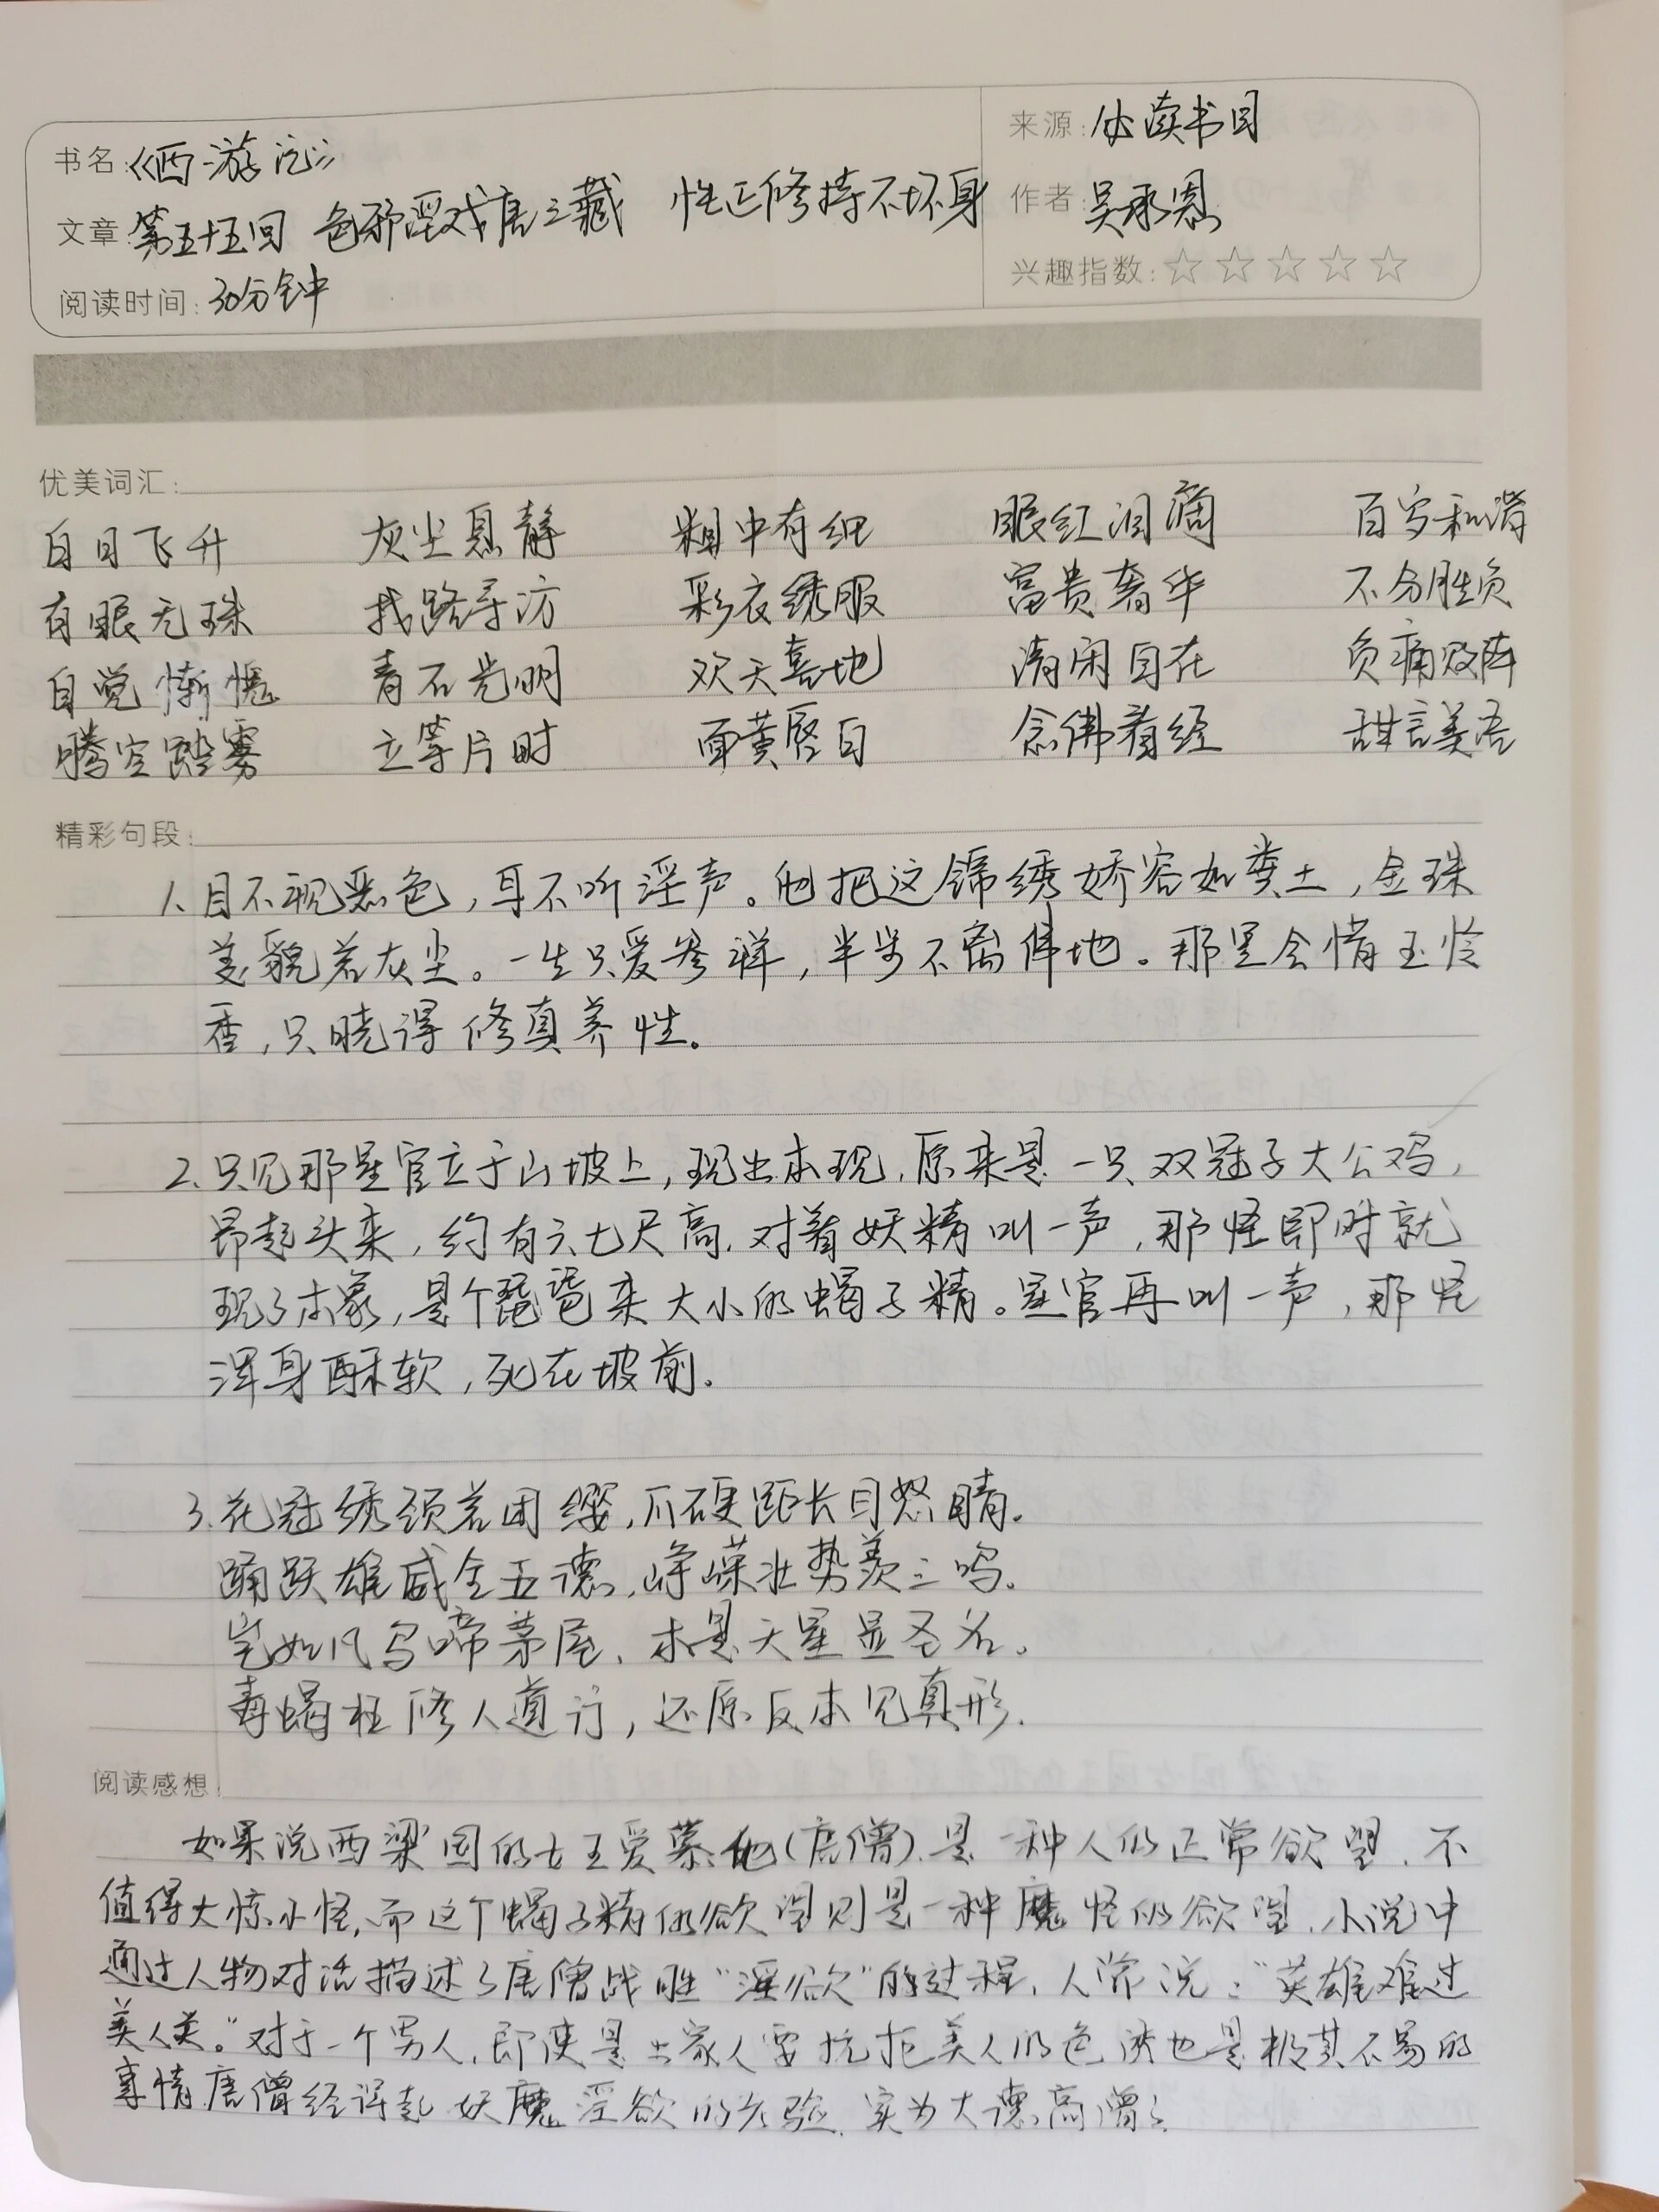 书名:《西游记》
来源:必读书目
文章:第五十五回 色邪淫戏唐三藏 性正修持不坏身
作者:吴承恩
阅读时间:30分钟
兴趣指数:☆☆☆☆☆
优美词汇:
白日飞升 灰尘息静 粗中有细 眼红泪滴 百岁和谐
有眼无珠 找路寻访 彩衣绣服 富贵奢华 不分胜负
自觉惭愧 青石光明 欢天喜地 清闲自在 负痛败阵
腾空踏雾 立等片时 面黄唇白 念佛看经 甜言美语
精彩句段:
1、目不视恶色,耳不听淫声。他把这锦绣娇容如粪土,金珠
美貌若灰尘。一生只爱参禅,半步不离佛地。那里会惜玉怜
香,只晓得修真养性。
2、只见那星官立于山坡上,现出本现,原来是一只双冠子大公鸡,
昂起头来,约有六七尺高,对着妖精叫一声,那怪即时就
现了本象,是个琵琶来大小的蝎子精。星官再叫一声,那怪
浑身酥软,死在坡前.
3.花冠绣颈若团缨,爪硬距长目怒睛.
踊跃雄威全五德,峥嵘壮势羡三鸣.
岂如凡鸟啼茅屋,本是天星显圣名。
毒蝎枉修人道行,还原反本见真形.
阅读感想:
如果说西梁国的女王爱慕他(唐僧),是一种人的正常欲望,不
值得大惊小怪,而这个蝎子精的欲望则是一种魔怪的欲望,小说中
通过人物对话描述了唐僧战胜“淫欲”的过程,人常说:“英雄难过
美人关。”对于一个男人,即使是出家人要抗拒美人的色诱也是极其不易的
事情.唐僧经得起妖魔淫欲的考验,实为大德高僧